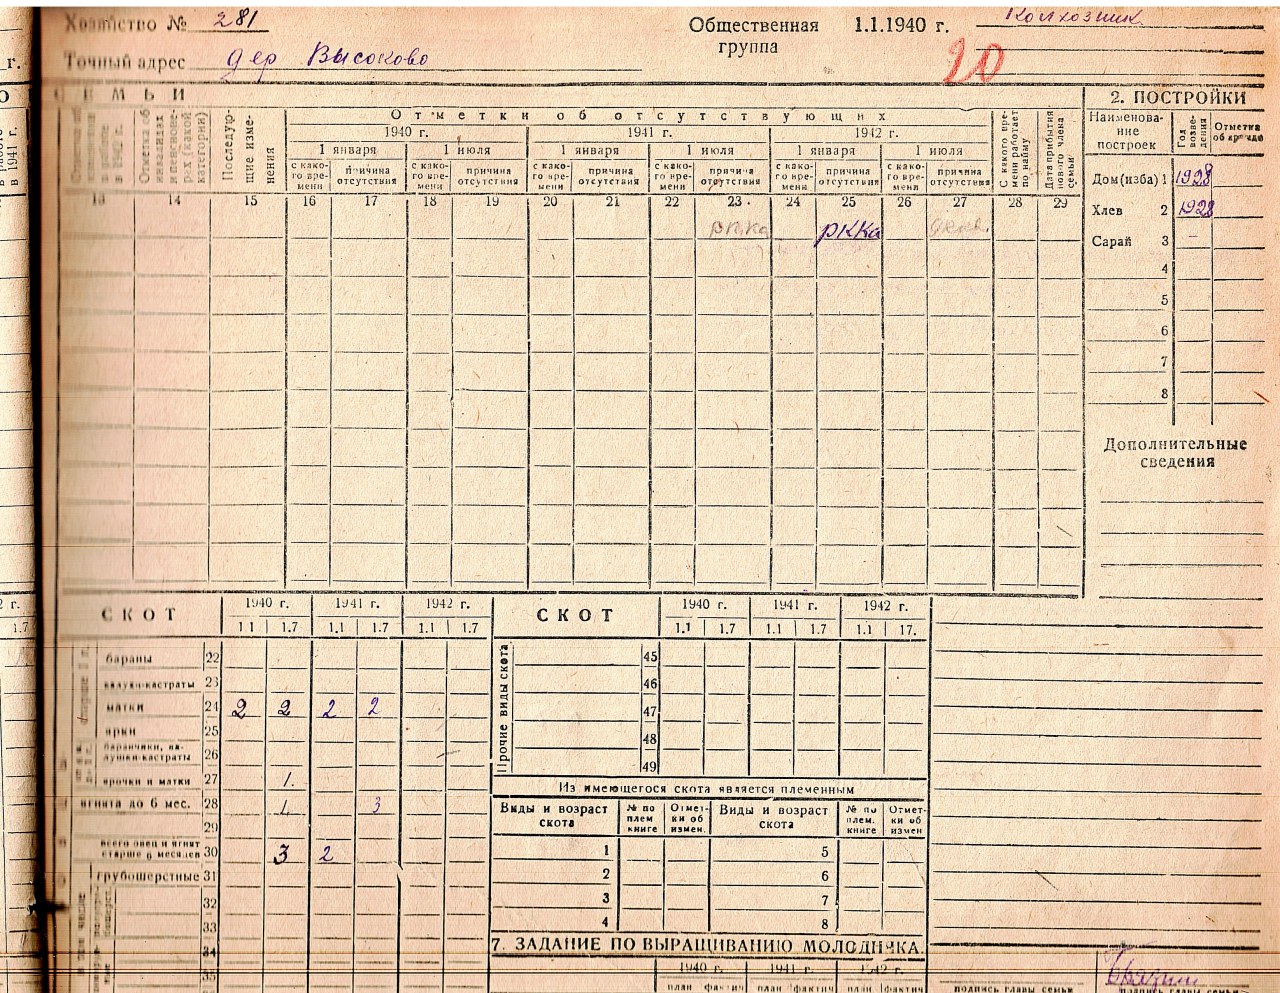 г.
Хозяйство № 281
Общественная группа 1.1.1940 г. Колхозник
Точный адрес дер Высоково
20
в 1941 г.
О СЕМЬИ
2. ПОСТРОЙКИ
Отметка об инвалидах и пенсионерах (какой категории)
Последующие изменения
Отметки об отсутствующих
1940 г. 1941 г. 1942 г.
1 января 1 июля 1 января 1 июля 1 января 1 июля
с какого времени причина отсутствия с какого времени причина отсутствия с какого времени причина отсутствия с какого времени причина отсутствия с какого времени причина отсутствия с какого времени причина отсутствия
С какого времени работает по найму
Дата прибытия нового члена семьи
Наименование построек
Год возведения
Отметка об аренде
13 14 15 16 17 18 19 20 21 22 23 24 25 26 27 28 29
РККа РККа
Дом(изба) 1 1928
Хлев 2 1928
Сарай 3 –
4
5
6
7
8
Дополнительные сведения
2 г.
1.7
СКОТ 1940 г. 1941 г. 1942 г.
1.1 1.7 1.1 1.7 1.1 1.7
бараны 22
валухи-кастраты 23
матки 24 2 2 2 2
ярки 25
баранчики, валушки-кастраты 26
ярочки и матки 27 1.
ягнята до 6 мес. 28 1. 3
29
всего овец и ягнят старше 6 месяцев 30 3 2
грубошерстные 31
32
33
34
35
СКОТ 1940 г. 1941 г. 1942 г.
1.1 1.7 1.1 1.7 1.1 17.
Прочие виды скота
45
46
47
48
49
Из имеющегося скота является племенным
Виды и возраст скота № по плем книге Отметки об измен. Виды и возраст скота № по плем. книге Отметки об измен
1 5
2 6
3 7
4 8
7. ЗАДАНИЕ ПО ВЫРАЩИВАНИЮ МОЛОДНЯКА
1940 г. 1941 г. 1942 г.
план фактич план фактич план фактич
подпись главы семьи подпись главы семьи